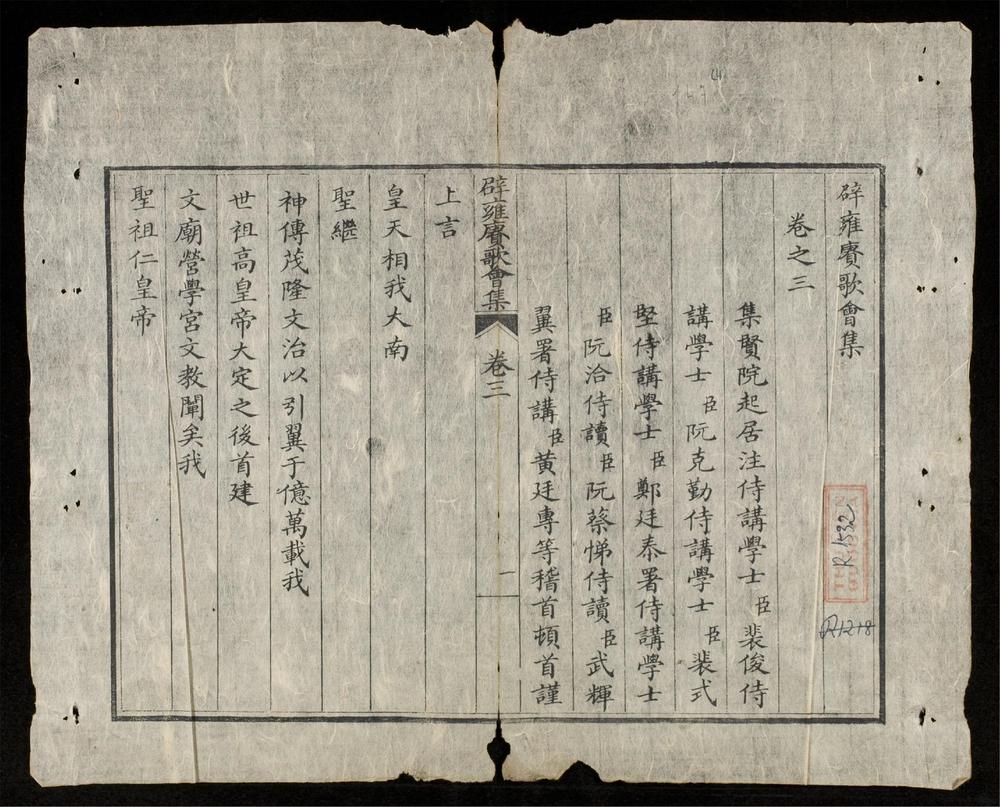 辟雍賡歌會集
卷之三
集賢院起居注侍講學士臣裴俊侍
講學士臣阮克勤侍講學士臣裴式
堅侍講學士臣鄭廷泰署侍講學士
臣阮洽侍讀臣阮蔡悌侍讀臣武輝
翼署侍講臣黃廷專等稽首頓首謹
辟雍賡歌會集 卷三 一
上言
皇天相我大南
聖繼
神傳茂隆文治以引翼于億萬載我
世祖高皇帝大定之後首建
文廟營學宮文教闡矣我
聖祖仁皇帝
R.1532
R1218